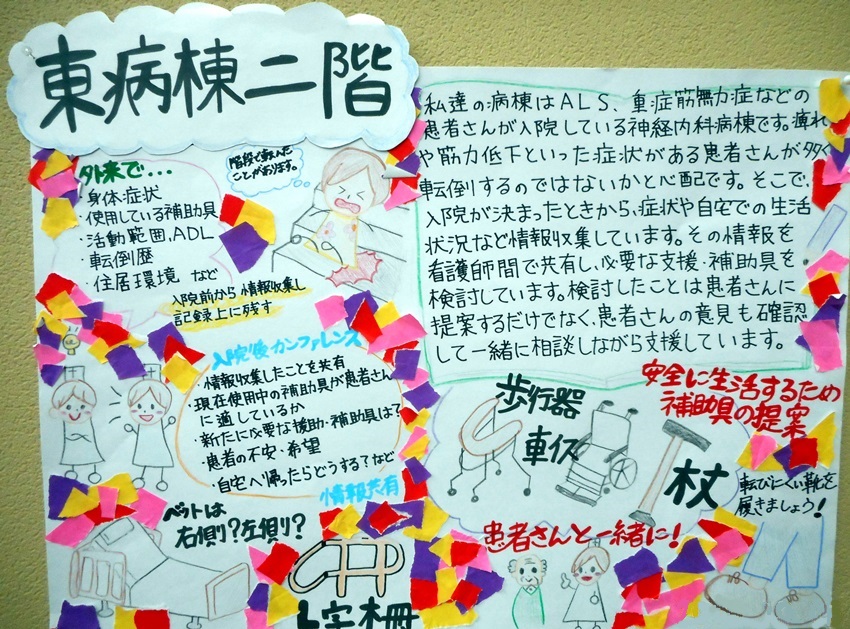 東病棟二階
外来で…
・身体症状
・使用している補助具
・活動範囲、ADL
・転倒歴
・住居環境 など
入院前から情報収集し
記録上に残す
階段で転んだ
ことがあります。
入院後カンファレンス
・情報収集したことを共有
・現在使用中の補助具が患者さん
に適しているか
・新たに必要な援助・補助具は?
・患者の不安・希望
・自宅へ帰ったらどうする?など
情報共有
ベットは
右側り?左側り?
L字柵
私達の病棟はALS、重症筋無力症などの
患者さんが入院している神経内科病棟です。痺れ
や筋力低下といった症状がある患者さんが多く
転倒するのではないかと心配です。そこで、
入院が決まったときから、症状や自宅での生活
状況など情報収集しています。その情報を
看護師間で共有し、必要な支援・補助具を
検討しています。検討したことは患者さんに
提案するだけでなく、患者さんの意見も確認
して一緒に相談しながら支援しています。
安全に生活するため
補助具の提案
歩行器
車イス
杖
転びにくい靴を
履きましょう!
患者さんと一緒に!